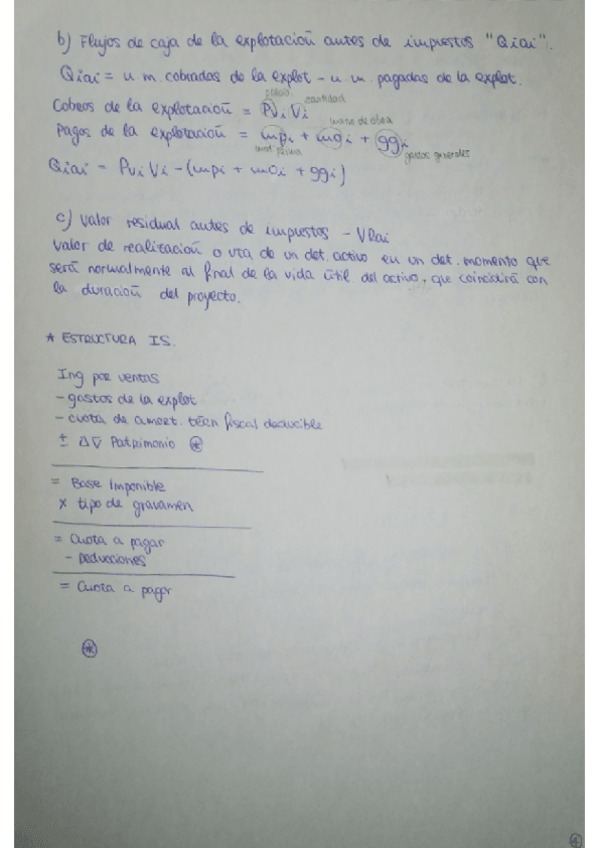 b) Flujos de caja de la explotación antes de impuestos "Qiai".
Qiai = u.m. cobradas de la explot - u.m. pagadas de la explot.
precio cantidad
Cobros de la explotación = Pvi Vi
mano de obra
Pagos de la explotación = mpi + moi + ggi
mat. prima gastos generales
Qiai = Pvi Vi - (mpi + moi + ggi)
c) Valor residual antes de impuestos - VRai
Valor de realización o vta de un det. activo en un det. momento que
será normalmente al final de la vida útil del activo, que coincidirá con
la duración del proyecto.
* ESTRUCTURA IS.
Ing por ventas
- gastos de la explot
- cuota de amort. técn fiscal deducible
± Δ∇ Patrimonio ⊛
= Base Imponible
x tipo de gravamen
= Cuota a pagar
- Deducciones
= Cuota a pagar
⊛